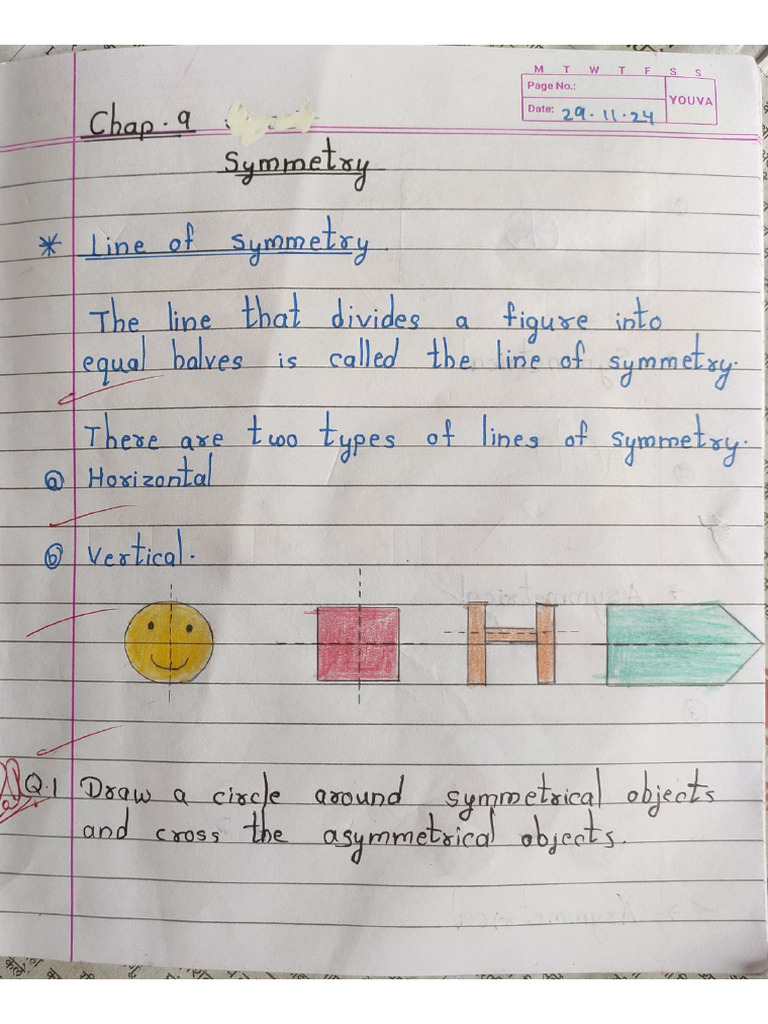 M T W T F S S
Page No.:
YOUVA
Date: 29.11.24
Chap. 9
Symmetry
* Line of symmetry.
The line that divides a figure into
equal halves is called the line of symmetry.
There are two types of lines of symmetry.
a Horizontal
b Vertical.
Q.1 Draw a circle around symmetrical objects
and cross the asymmetrical objects.